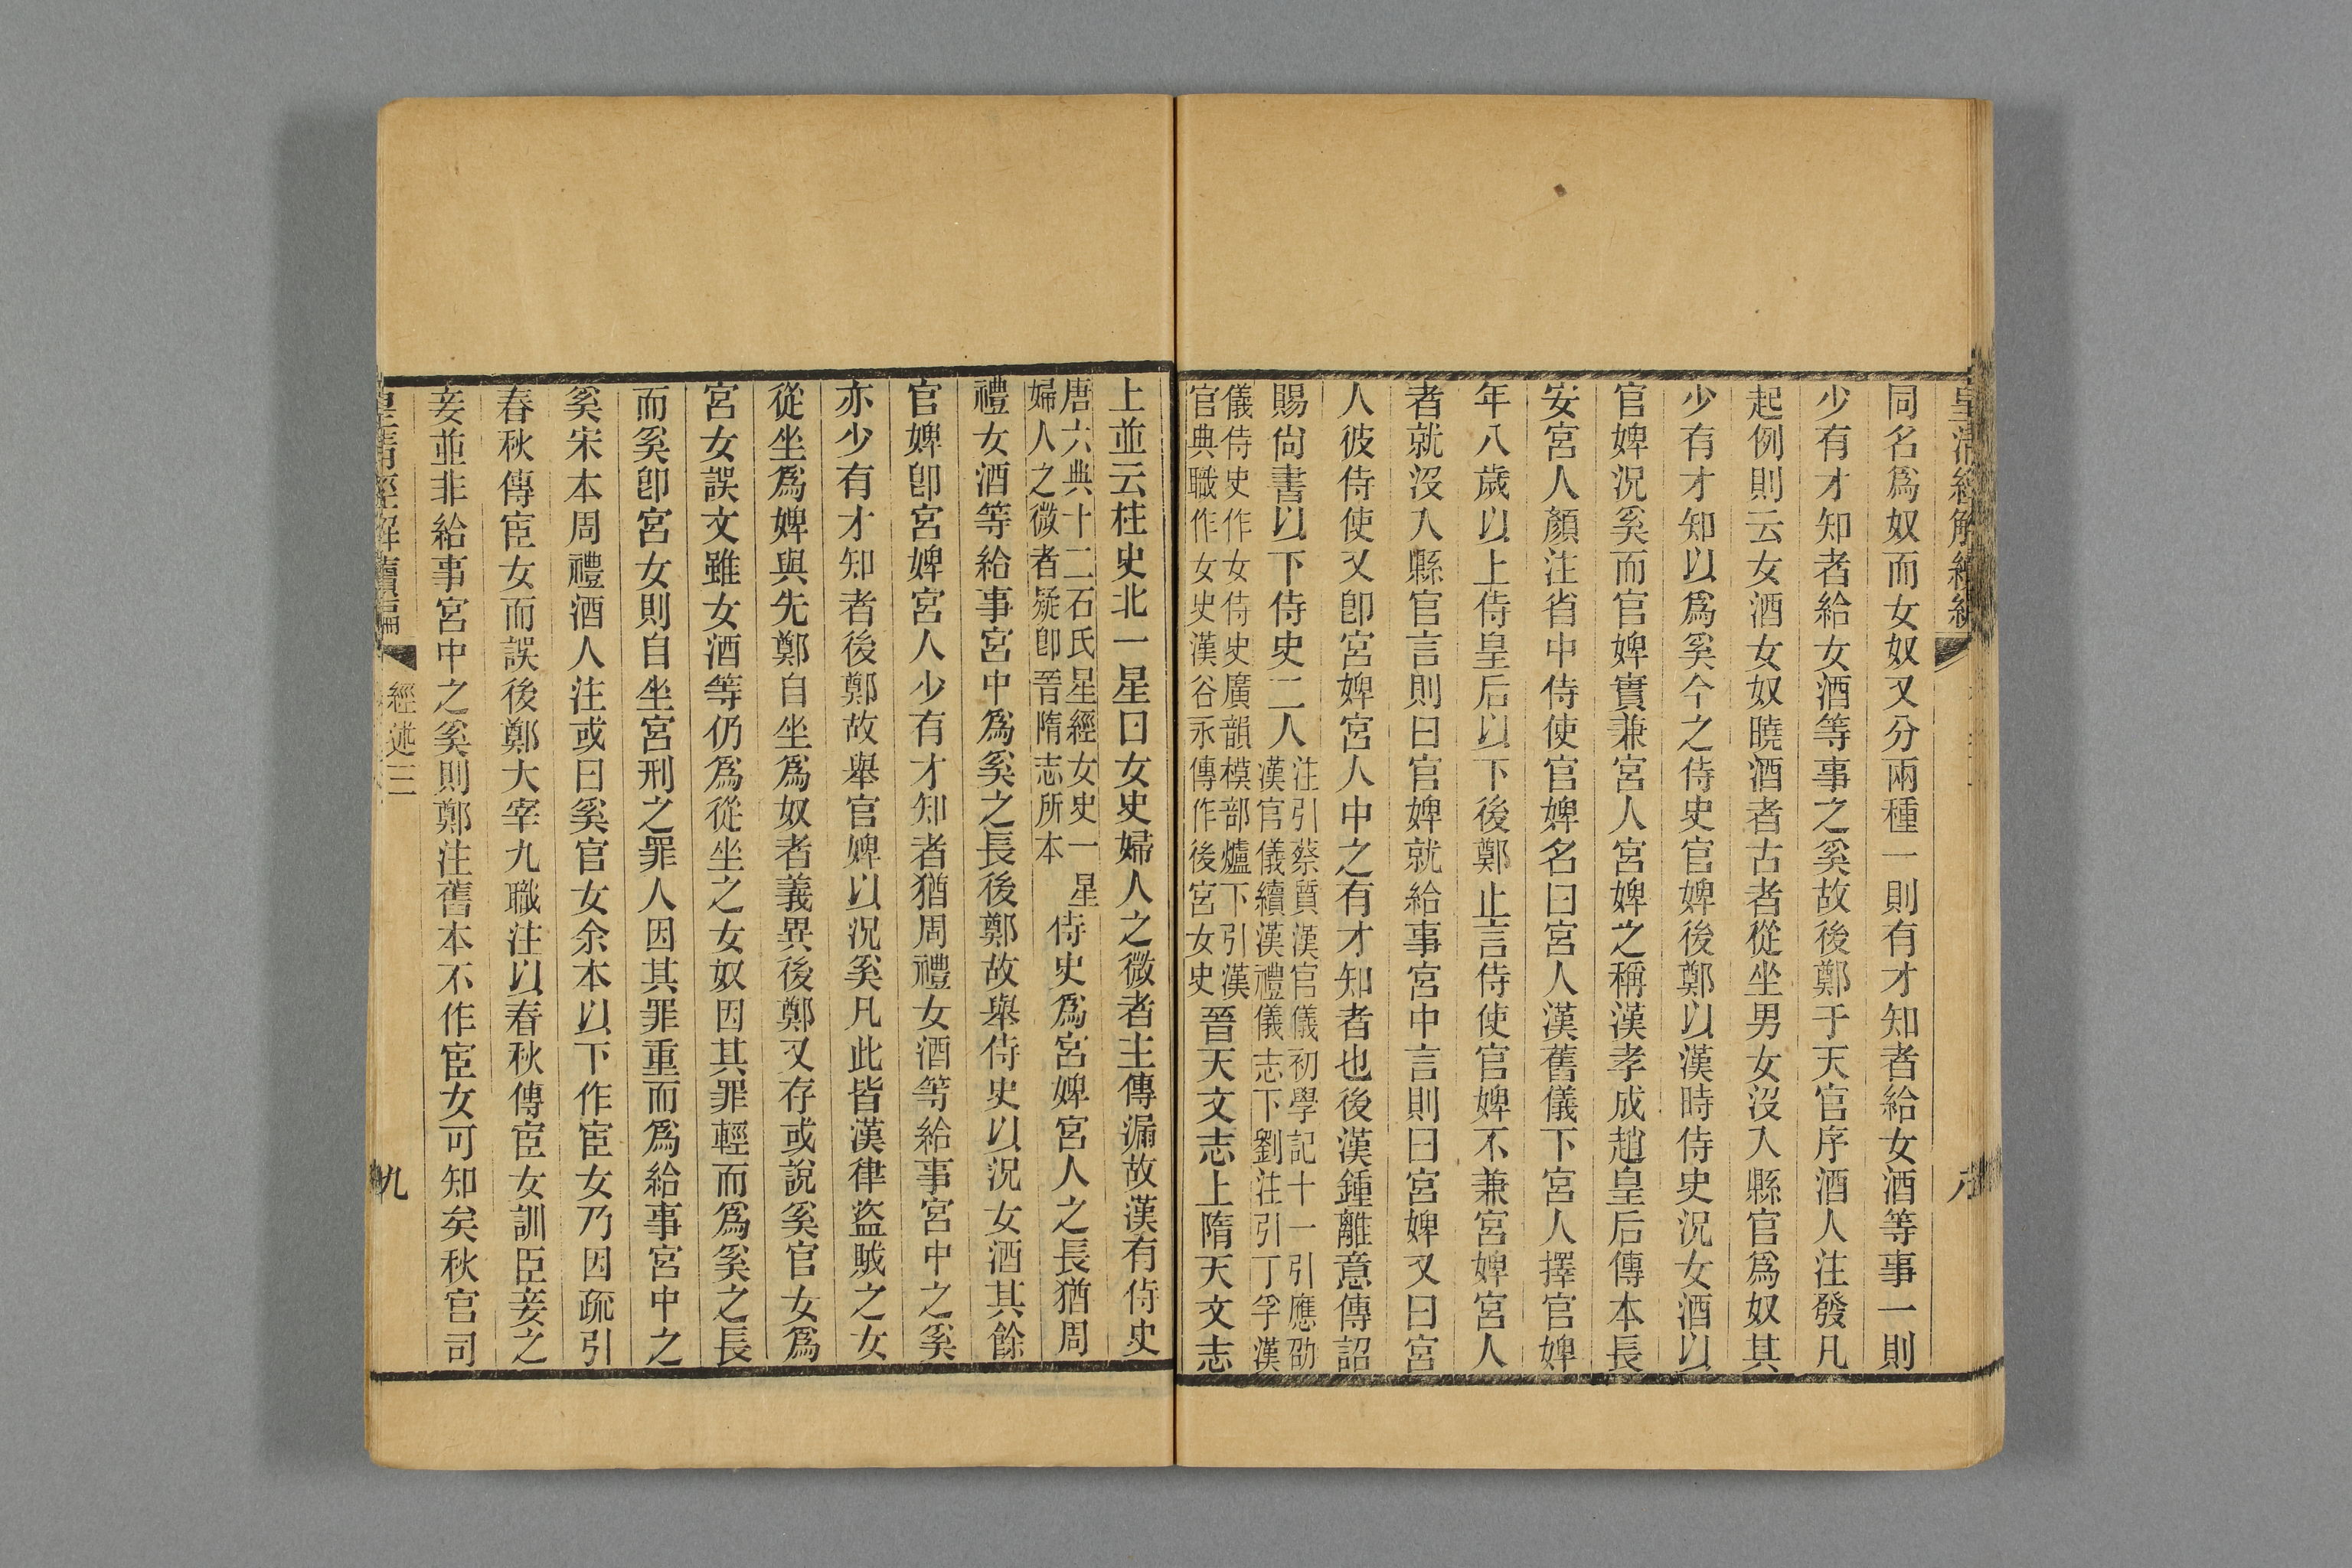 皇清經解續編
八
同名爲奴而女奴又分兩種一則有才知者給女酒等事一則
少有才知者給女酒等事之奚故後鄭于天官序酒人注發凡
起例則云女酒女奴曉酒者古者從坐男女沒入縣官爲奴其
少有才知以爲奚今之侍史官婢後鄭以漢時侍史況女酒以
官婢況奚而官婢實兼宮人宮婢之稱漢孝成趙皇后傳本長
安宮人顏注省中侍使官婢名曰宮人漢舊儀下宮人擇官婢
年八歲以上侍皇后以下後鄭止言侍使官婢不兼宮婢宮人
者就沒入縣官言則曰官婢就給事宮中言則曰宮婢又曰宮
人彼侍使又卽宮婢宮人中之有才知者也後漢鍾離意傳詔
賜尙書以下侍史二人
注引蔡質漢官儀初學記十一引應劭
漢官儀續漢禮儀志下劉注引丁孚漢
儀侍史作女侍史廣韻模部爐下引漢
官典職作女史漢谷永傳作後宮女史
晉天文志上隋天文志
上並云柱史北一星曰女史婦人之微者主傳漏故漢有侍史
唐六典十二石氏星經女史一星
婦人之微者疑卽晉隋志所本
侍史爲宮婢宮人之長猶周
禮女酒等給事宮中爲奚之長後鄭故舉侍史以況女酒其餘
官婢卽宮婢宮人少有才知者猶周禮女酒等給事宮中之奚
亦少有才知者後鄭故舉官婢以況奚凡此皆漢律盜賊之女
從坐爲婢與先鄭自坐爲奴者義異後鄭又存或說奚官女爲
宮女誤文雖女酒等仍爲從坐之女奴因其罪輕而爲奚之長
而奚卽宮女則自坐宮刑之罪人因其罪重而爲給事宮中之
奚宋本周禮酒人注或曰奚官女余本以下作宦女乃因疏引
春秋傳宦女而誤後鄭大宰九職注以春秋傳宦女訓臣妾之
妾並非給事宮中之奚則鄭注舊本不作宦女可知矣秋官司
皇清經解續編
經述三
九